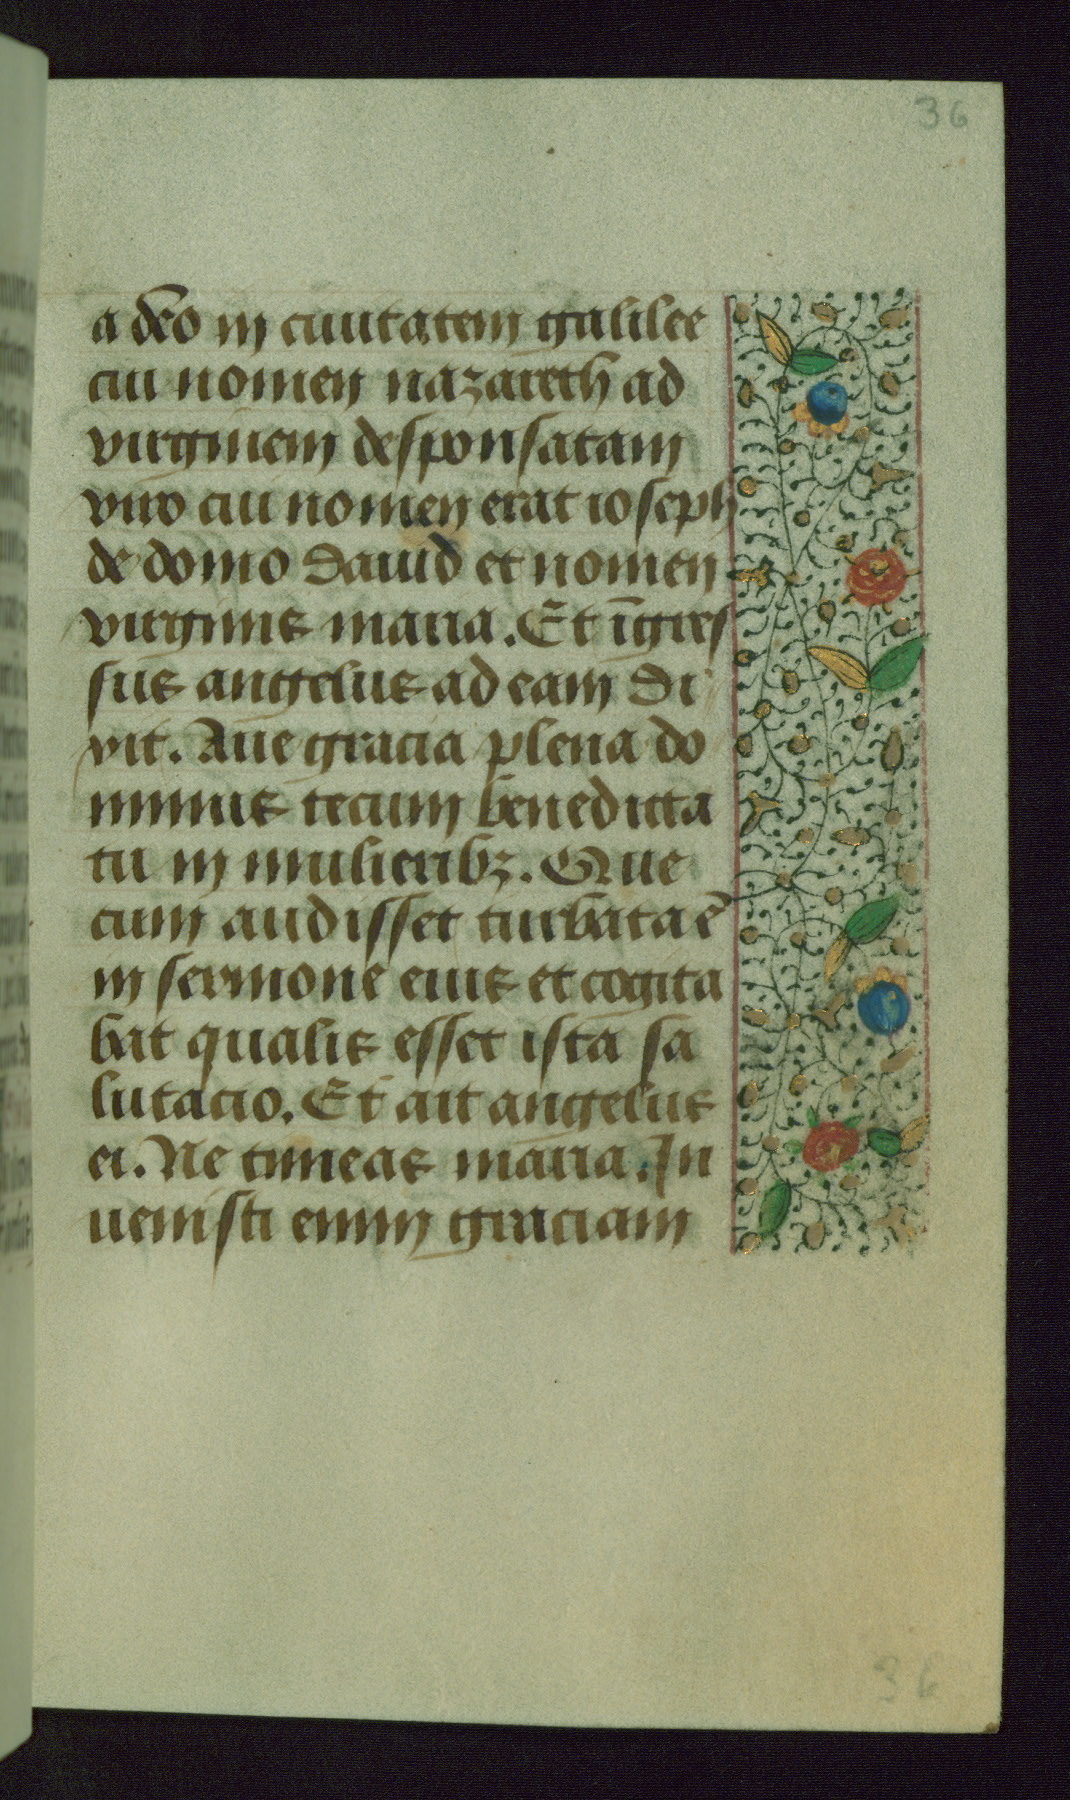 36
a deo in ciuitatem galilee
cui nomen nazareth ad
virginem desponsatam
viro cui nomen erat ioseph
de domo dauid et nomen
virginis maria. Et īgres
sus angelus ad eam di
xit. Aue gracia plena do
minus tecum benedicta
tu in mulieribꝫ. Que
cum audisset turbata ē
in sermone eius et cogita
bat qualis esset ista sa
lutacio. Et ait angelus
ei. Ne timeas maria. In
uenisti enim graciam
36